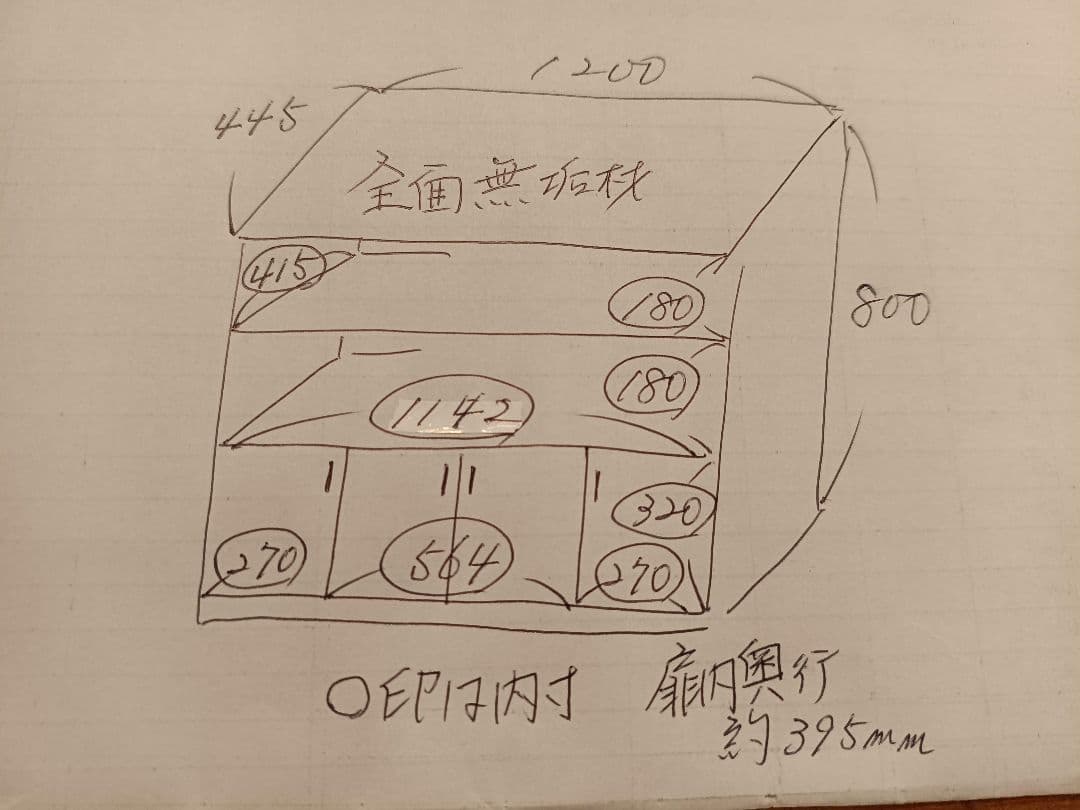 1200
445
全面無垢材
415
180
800
180
1142
320
270
564
270
○印は内寸
扉内奥行
約395mm